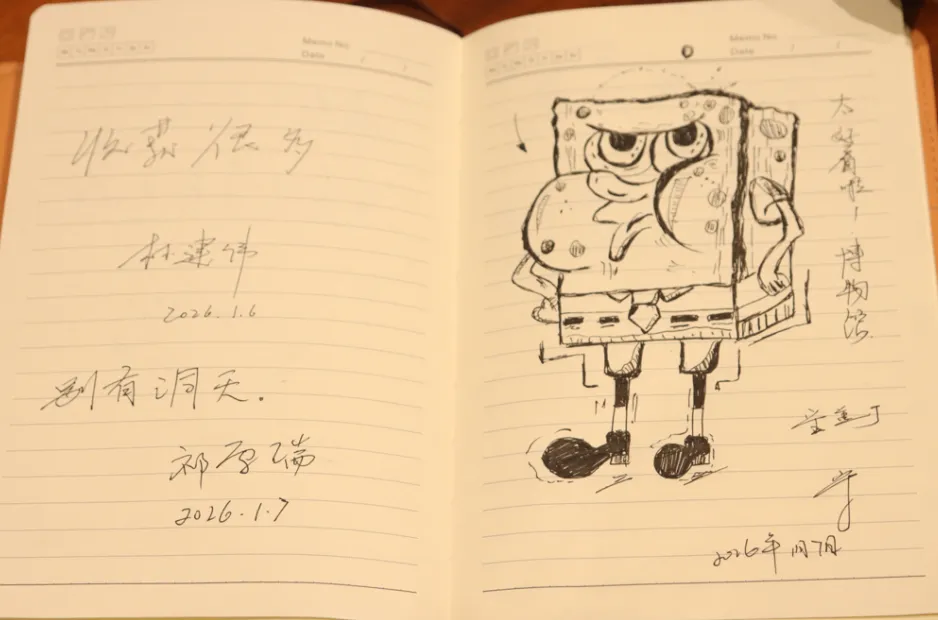 Memo No.
Date / /
收获很多
林建伟
2026.1.6
别有洞天.
祁厚瑞
2026.1.7
Memo No.
Date / /
太好看啦！博物馆
2026年1月7日